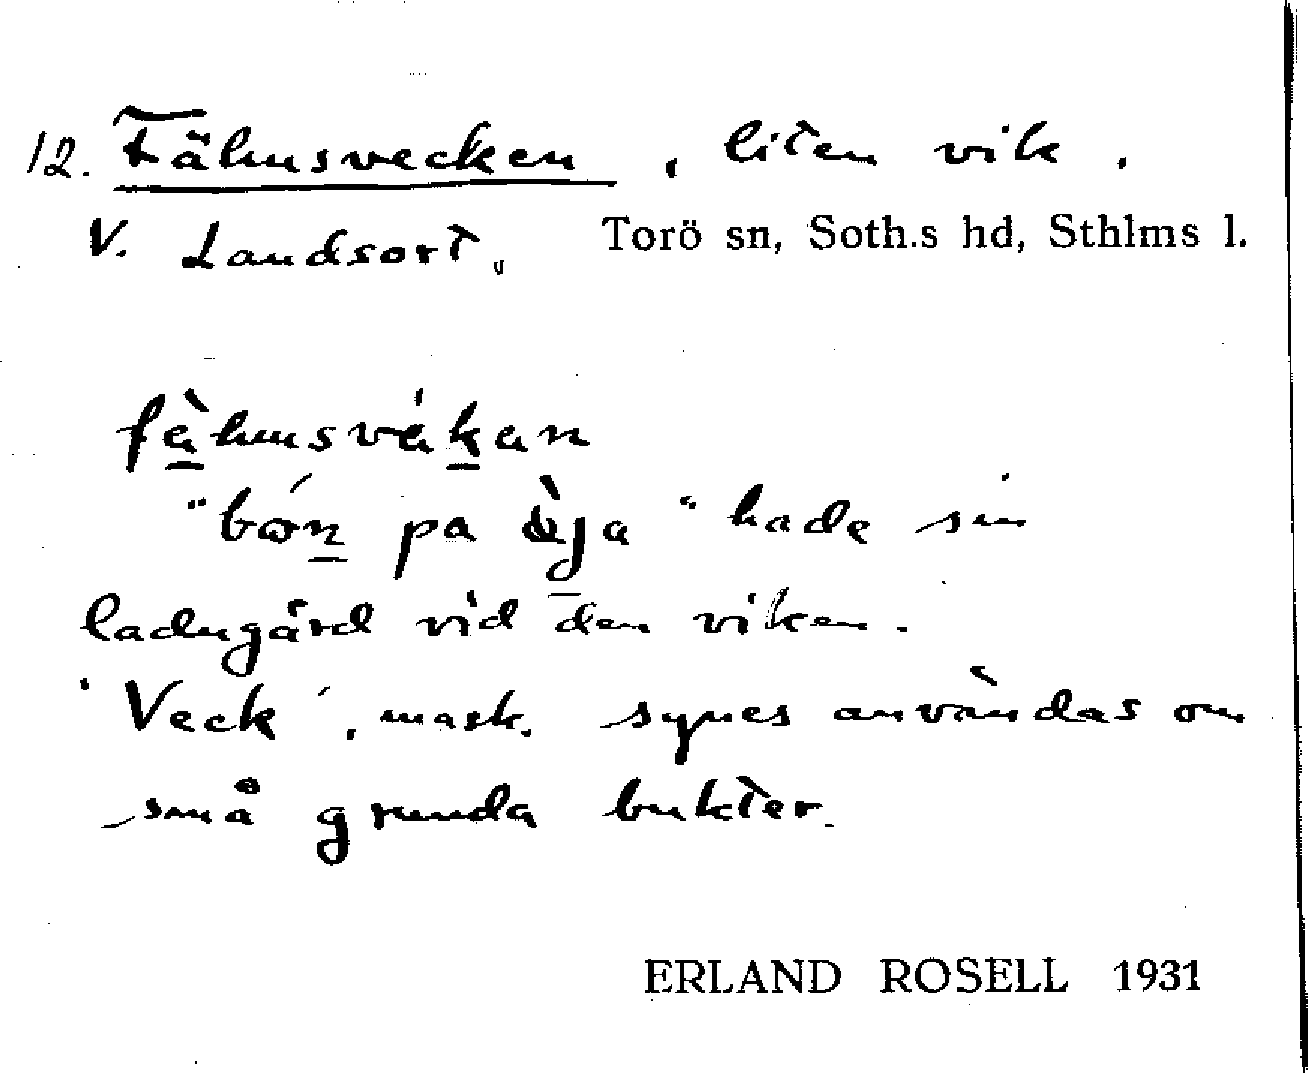 12. Fähusvecken, liten vik.
V. Landsort, Torö sn, Soth.s hd, Sthlms l.
fä̀husvékan
"bón pa ö̀ja" hade sin
ladugård vid den viken.
'Veck', mask. synes användas om
små grunda bukter.
ERLAND ROSELL 1931